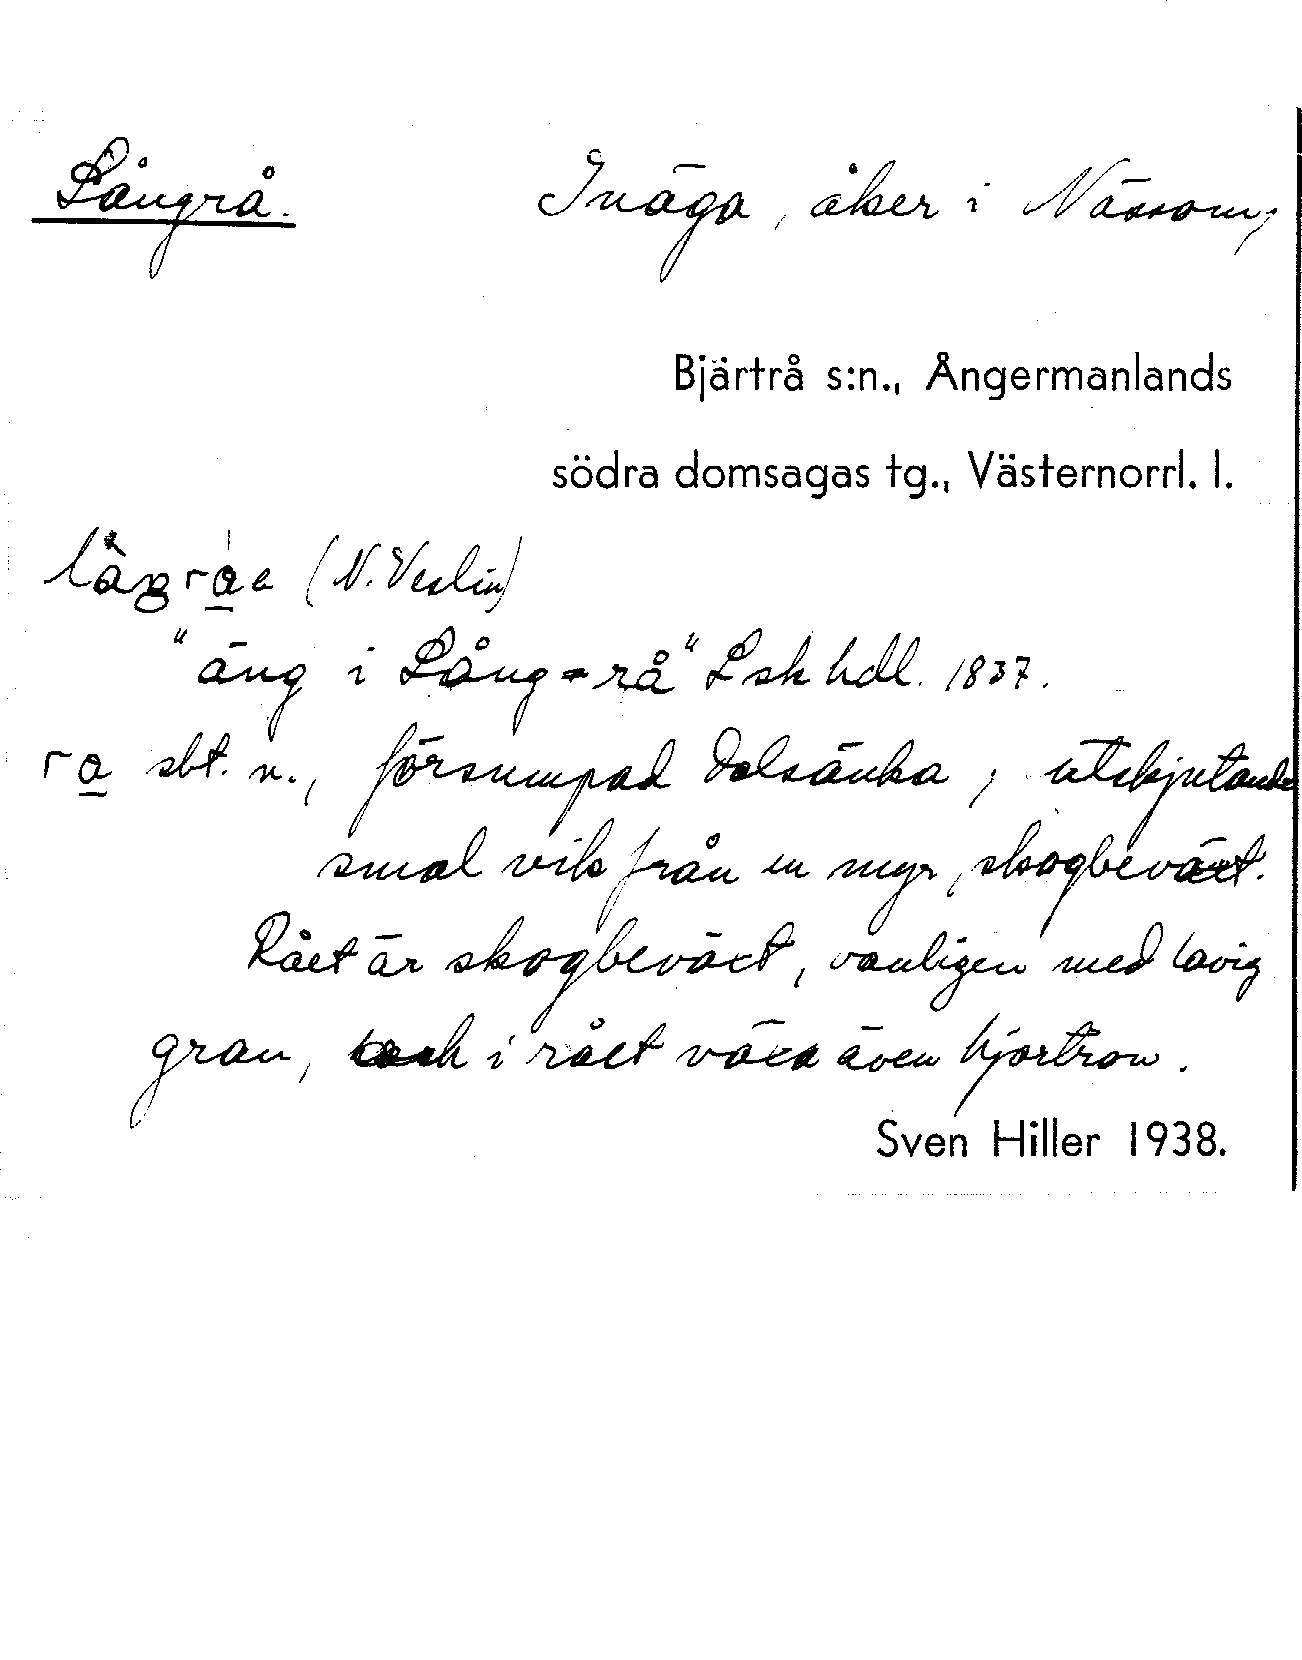 Långrå. Inäga, åker i Nässom,
Bjärtrå s:n., Ångermanlands
södra domsagas tg., Västernorrl. l.
(N. Veslin)
"äng i Lång=rå" Lsk hdl. 1837.
sbt. n., försumpad dalsänka, utskjutande
smal vik från en myr, skogbeväxt.
Rået är skogbeväxt, vanligen med lavig
gran, och i rået växa även hjortron.
Sven Hiller 1938.